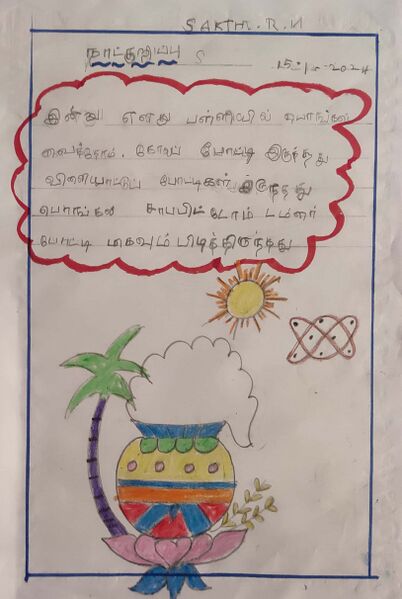 SAKTHI.R.N
நாட்குறிப்பு
இன்று எனது பள்ளியில் பொங்கல்
வைத்தோம். கோலப் போட்டி இருந்தது
விளையாட்டுப் போட்டிகள் இருந்தது
பொங்கல் சாபபிட்டோம் டம்ளர்
போட்டி மிகவும் பிடித்திருந்தது